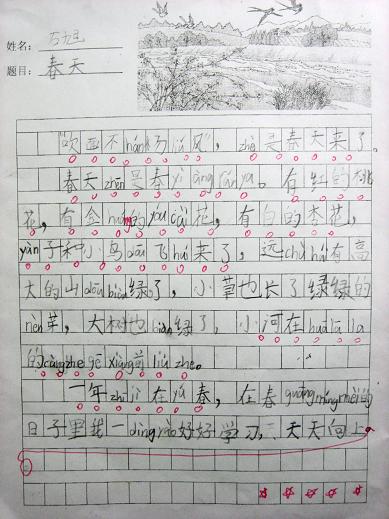 姓名：
题目：春天
"吹面不hán杨liǔ风"，zhè是春天来了。
春天zhēn是春yì àng rán ya。有红的桃
花，有金huáng的yóu cài花，有白的李花，
yàn子和小鸟dōu飞huí来了，远chù hái有高
大的山dōu biàn绿了，小草也长了绿绿的
nèn芽，大树也biàn绿了，小河在huā lā la
的chàng zhe gē xiàng qián liú zhe。
一年zhī jì在yú春，在春guāng míng mèi的
日子里我一dìng yào好好学习，天天向上
。